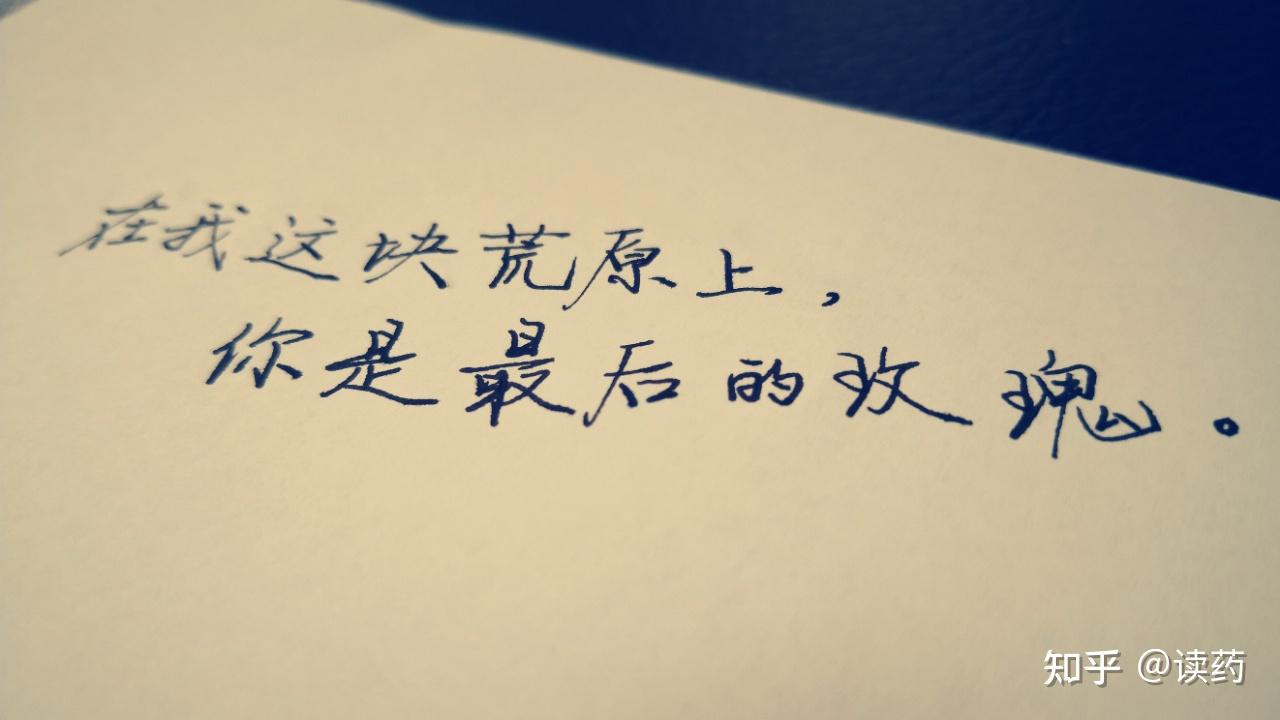 在我这块荒原上，
你是最后的玫瑰。
知乎 @读药